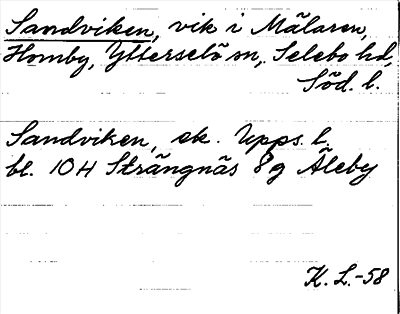 Sandviken, vik i Mälaren,
Homby, Ytterselö sn, Selebo hd,
Söd. l.
Sandviken, ek. Upps. l.
bl. 10 H Strängnäs 8 g Åleby
K. L. -58